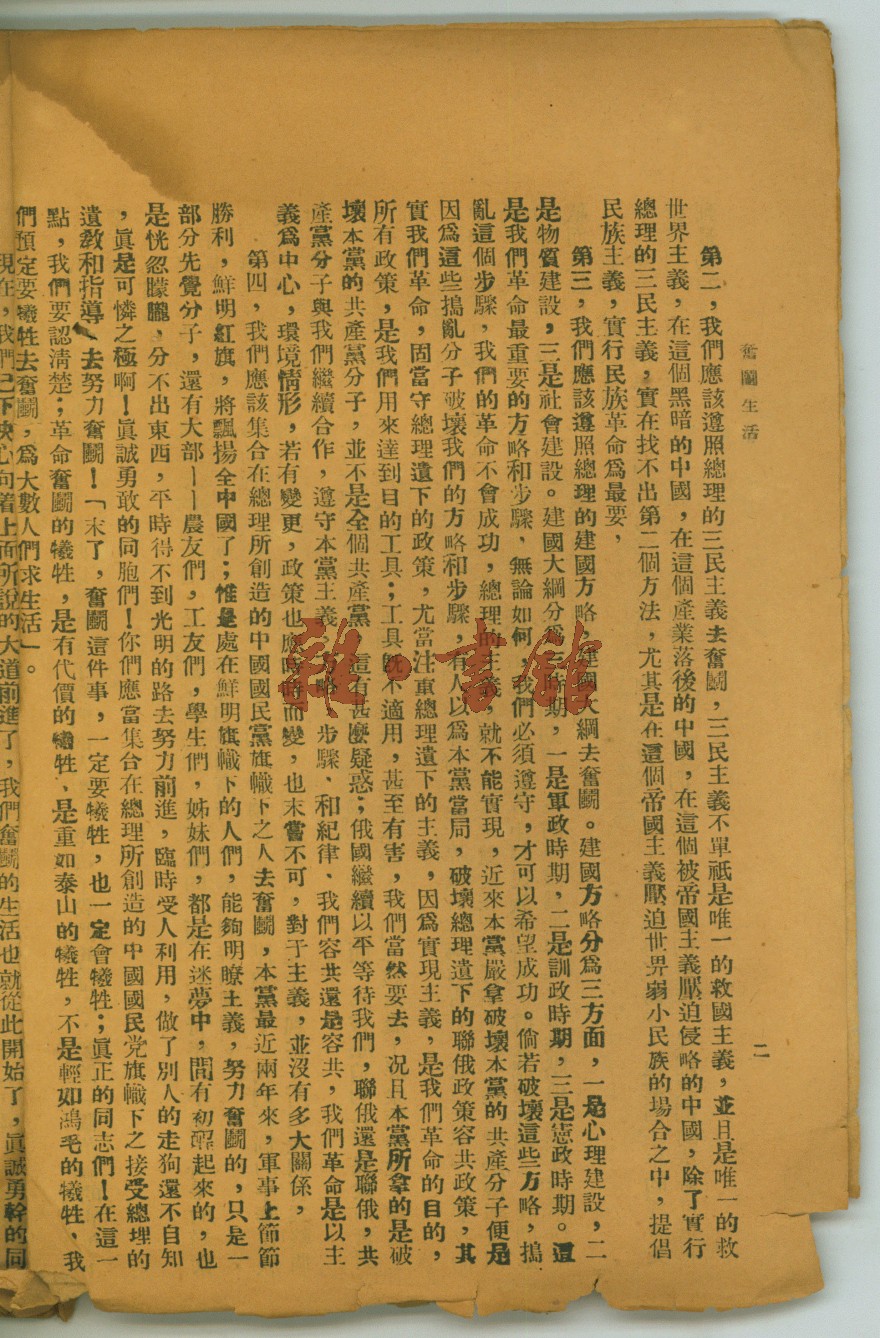 奮鬭生活
二
第二，我們應該遵照總理的三民主義去奮鬭，三民主義不單祇是唯一的救國主義，並且是唯一的救
世界主義，在這個黑暗的中國，在這個產業落後的中國，在這個被帝國主義壓迫侵略的中國，除了實行
總理的三民主義，實在找不出第二個方法，尤其是在這個帝國主義壓迫世界弱小民族的場合之中，提倡
民族主義，實行民族革命爲最要，
第三，我們應該遵照總理的建國方略 建國大綱去奮鬭。建國方略分爲三方面，一是心理建設，二
是物質建設，三是社會建設。建國大綱分爲三時期，一是軍政時期，二是訓政時期，三是憲政時期。這
是我們革命最重要的方略和步驟、無論如何，我們必須遵守，才可以希望成功。倘若破壞這些方略，搗
亂這個步驟，我們的革命不會成功，總理的主義，就不能實現，近來本黨嚴拿破壞本黨的共產分子便是
因爲這些搗亂分子破壞我們的方略和步驟，有人以爲本黨當局，破壞總理遺下的聯俄政策容共政策，其
實我們革命，固當守總理遺下的政策，尤當注重總理遺下的主義，因爲實現主義，是我們革命的目的，
所有政策，是我們用來達到目的工具；工具旣不適用，甚至有害，我們當然要去，况且本黨所拿的是破
壞本黨的共產黨分子，並不是全個共產黨 這有甚麽疑惑；俄國繼續以平等待我們，聯俄還是聯俄，共
產黨分子與我們繼續合作，遵守本黨主義，方略，步驟、和紀律、我們容共還是容共，我們革命是以主
義爲中心，環境情形，若有變更，政策也應時時而變，也未嘗不可，對于主義，並沒有多大關係，
第四，我們應該集合在總理所創造的中國國民黨旗幟下之人去奮鬭，本黨最近兩年來，軍事上節節
勝利，鮮明紅旗，將飄揚全中國了；惟是處在鮮明旗幟下的人們，能夠明瞭主義，努力奮鬭的，只是一
部分先覺分子，還有大部——農友們，工友們，學生們，姊妹們，都是在迷夢中，間有初醒起來的，也
是恍忽矇朧，分不出東西，平時得不到光明的路去努力前進，臨時受人利用，做了別人的走狗還不自知
，眞是可憐之極啊！眞誠勇敢的同胞們！你們應當集合在總理所創造的中國國民党旗幟下之接受總理的
遺敎和指導、去努力奮鬭！「末了，奮鬭這件事，一定要犧牲，也一定會犧牲；眞正的同志們！在這一
點，我們要認清楚；革命奮鬭的犧牲，是有代價的犧牲、是重如泰山的犧牲，不是輕如鴻毛的犧牲、我
們預定要犧牲去奮鬭，爲大數人們求生活」。
現在，我們已下決心向着上面所說的大道前進了，我們奮鬭的生活也就從此開始了，眞誠勇幹的同
雜·書館